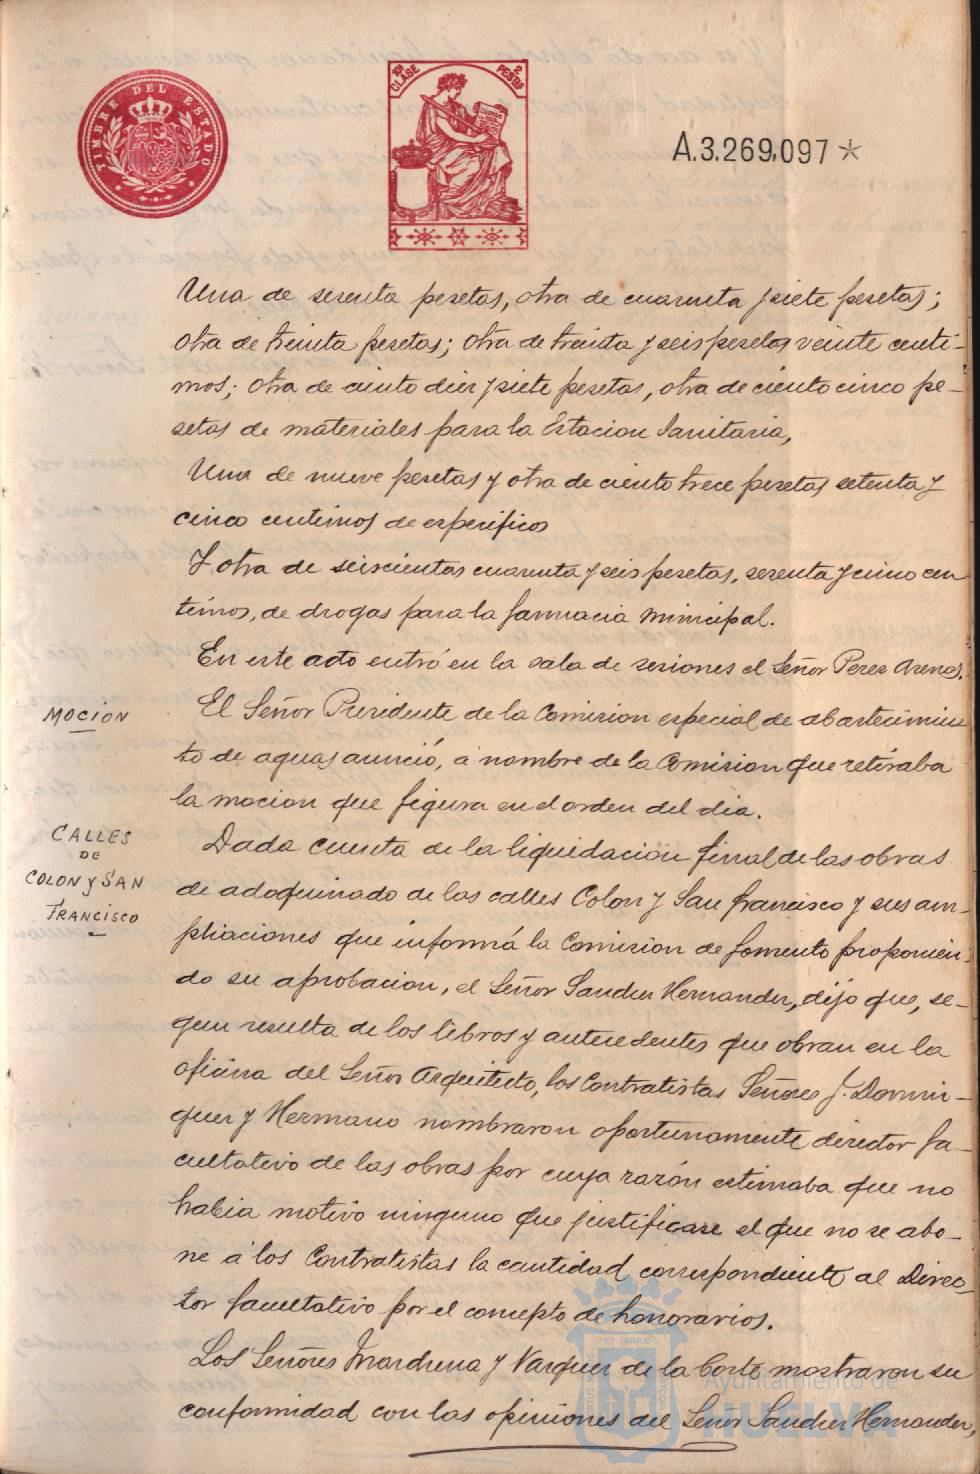 TIMBRE DEL ESTADO
10ª CLASE
2 PESETAS
A.3.269,097*
Una de sesenta pesetas, otra de cuarenta y siete pesetas;
otra de treinta pesetas; otra de treinta y seis pesetas veinte centi-
mos; otra de ciento diez y siete pesetas, otra de ciento cinco pe-
setas de materiales para la Estacion Sanitaria,
Una de nueve pesetas y otra de ciento trece pesetas setenta y
cinco centimos de especificos
Y otra de seiscientas cuarenta y seis pesetas, sesenta y cinco cen
timos, de drogas para la farmacia municipal.
En este acto entró en la sala de sesiones el Señor Perez Arenas.
MOCION
El Señor Presidente de la Comision especial de abastecimien
to de aguas anunció, á nombre de la Comision que retiraba
la mocion que figura en el orden del dia.
CALLES
DE
COLON Y SAN
FRANCISCO
Dada cuenta de la liquidación final de las obras
de adoquinado de las calles Colon y San Francisco y sus am-
pliaciones que informá la Comision de fomento proponien-
do su aprobacion, el Señor Sanchez Hernandez, dijo que, se-
gun resulta de los libros y antecedentes que obran en la
oficina del Señor Arquitecto, los Contratistas Señores J. Domin-
guez y Hermano nombraron oportunamente director fa-
cultativo de las obras por cuya razón estimaba que no
habia motivo ninguno que justificase el que no se abo-
ne á los Contratistas la cantidad correspondiente al Direc-
tor facultativo por el concepto de honorarios.
Los Señores Marchena y Vazquez de la Corte mostraron su
conformidad con las opiniones del Señor Sanchez Hernandez,
Ayuntamiento de
HUELVA